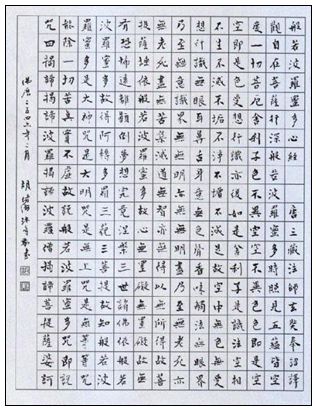 般若波羅蜜多心經 唐三藏法師玄奘奉詔譯
觀自在菩薩行深般若波羅蜜多時照見五蘊皆空
度一切苦厄舍利子色不異空空不異色色即是空
空即是色受想行識亦復如是舍利子是諸法空相
不生不滅不垢不淨不增不減是故空中無色無受
想行識無眼耳鼻舌身意無色聲香味觸法無眼界
乃至無意識界無無明亦無無明盡乃至無老死亦
無老死盡無苦集滅道無智亦無得以無所得故菩
提薩埵依般若波羅蜜多故心無罣礙無罣礙故無
有恐怖遠離顛倒夢想究竟涅槃三世諸佛依般若
波羅蜜多故得阿耨多羅三藐三菩提故知般若波
羅蜜多是大神咒是大明咒是無上咒是無等等咒
能除一切苦真實不虛故說般若波羅蜜多咒即說
咒曰揭諦揭諦波羅揭諦波羅僧揭諦菩提薩婆訶
佛歷二五四六年二月 胡 沐手恭書